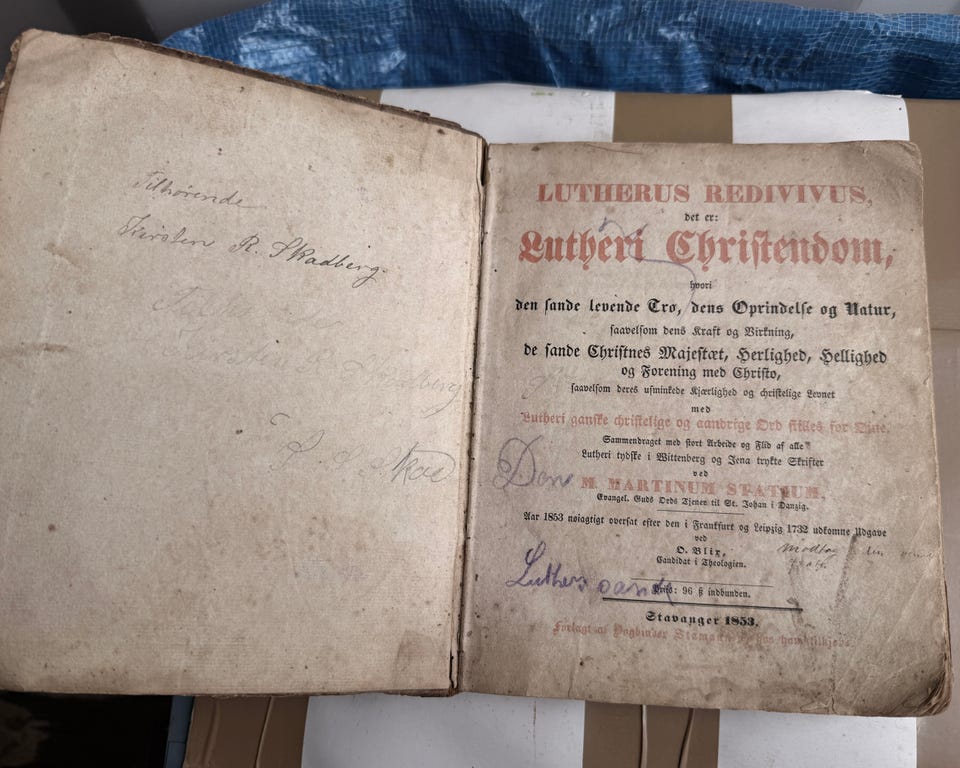 Tilhørende
Kirsten R. Skadberg.
LUTHERUS REDIVIVUS,
det er:
Lutheri Christendom,
hvori
den sande levende Tro, dens Oprindelse og Natur,
saavelsom dens Kraft og Virkning,
de sande Christnes Majestæt, Herlighed, Hellighed
og Forening med Christo,
saavelsom deres usminkede Kjærlighed og christelige Levnet
med
Lutheri ganske christelige og aandrige Ord stilles for Øine.
Sammendraget med stort Arbeide og Flid af alle
Lutheri tydske i Wittenberg og Jena trykte Skrifter
ved
M. MARTINUM STATIUM,
Evangel. Guds Ords Tjener til St. Johan i Danzig.
Aar 1853 nøiagtigt oversat efter den i Frankfurt og Leipzig 1732 udkomne Udgave
ved
O. Blix,
Candidat i Theologien.
Luthers
Priis: 96 ß indbunden.
Stavanger 1853.
Forlagt af Bogbinder